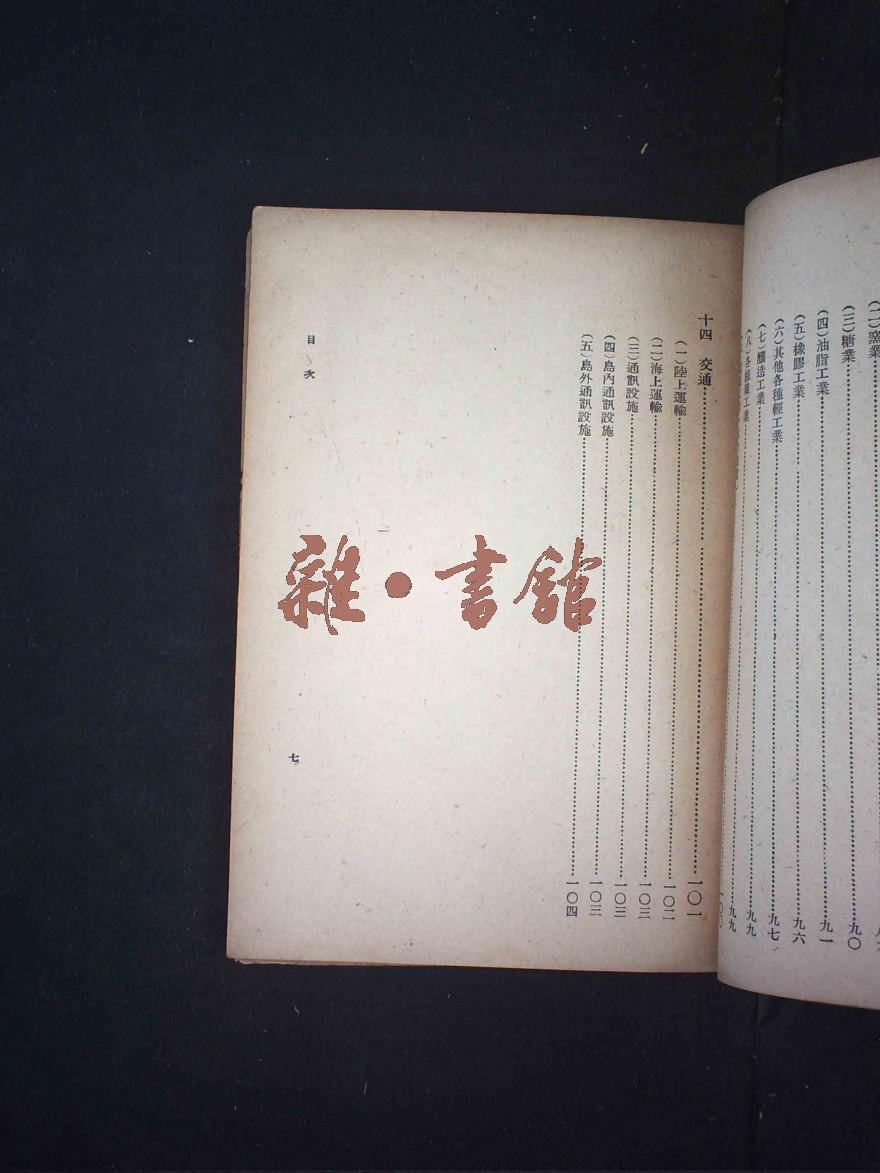 （二）窯業
（三）糖業……九〇
（四）油脂工業……九一
（五）橡膠工業……九六
（六）其他各種輕工業……九七
（七）釀造工業……九九
（八）各種雜工業……九九
一〇〇
十四　交通……一〇一
（一）陸上運輸……一〇二
（二）海上運輸……一〇三
（三）通訊設施……一〇三
（四）島內通訊設施……一〇三
（五）島外通訊設施……一〇四
目次
七
雜·書館